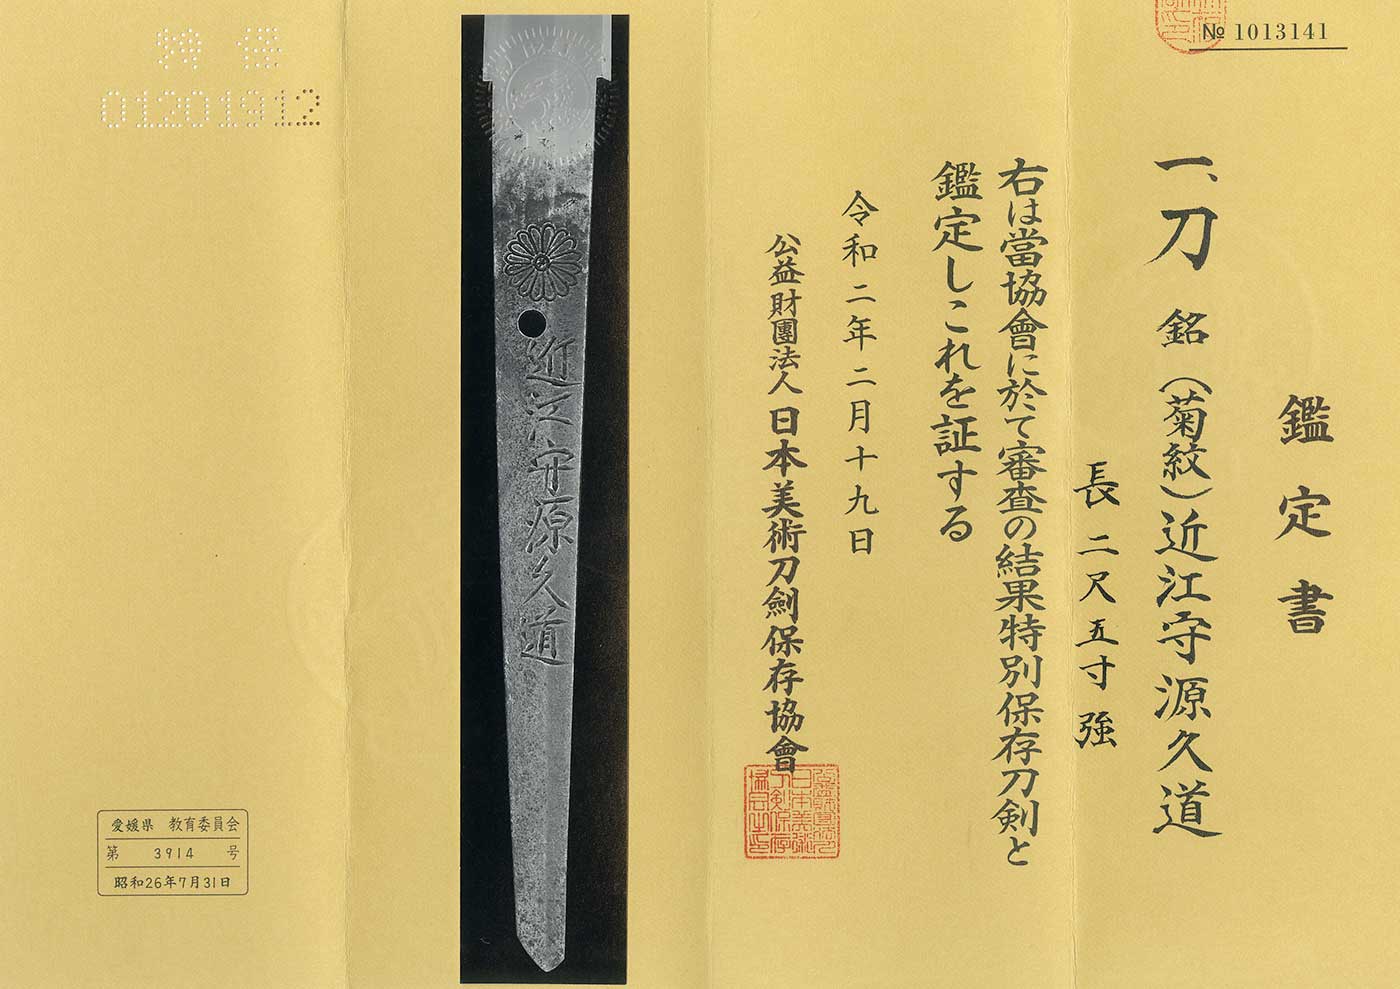 № 1013141
鑑定書
一、刀 銘（菊紋）近江守源久道
長二尺五寸強
右は當協會に於て審査の結果特別保存刀剣と
鑑定しこれを証する
令和二年二月十九日
公益財團法人日本美術刀劍保存協會
近江守源久道
01201912
愛媛県 教育委員会
第 3914 号
昭和26年7月31日